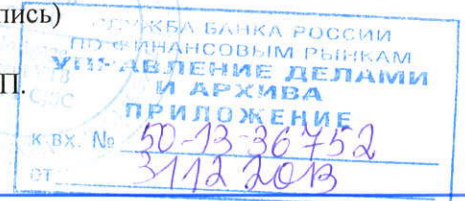 пись)
П.
СЛУЖБА БАНКА РОССИИ
ПО ФИНАНСОВЫМ РЫНКАМ
УПРАВЛЕНИЕ ДЕЛАМИ
И АРХИВА
ПРИЛОЖЕНИЕ
К ВХ. № 50-13-36752
ОТ 31 12 2013